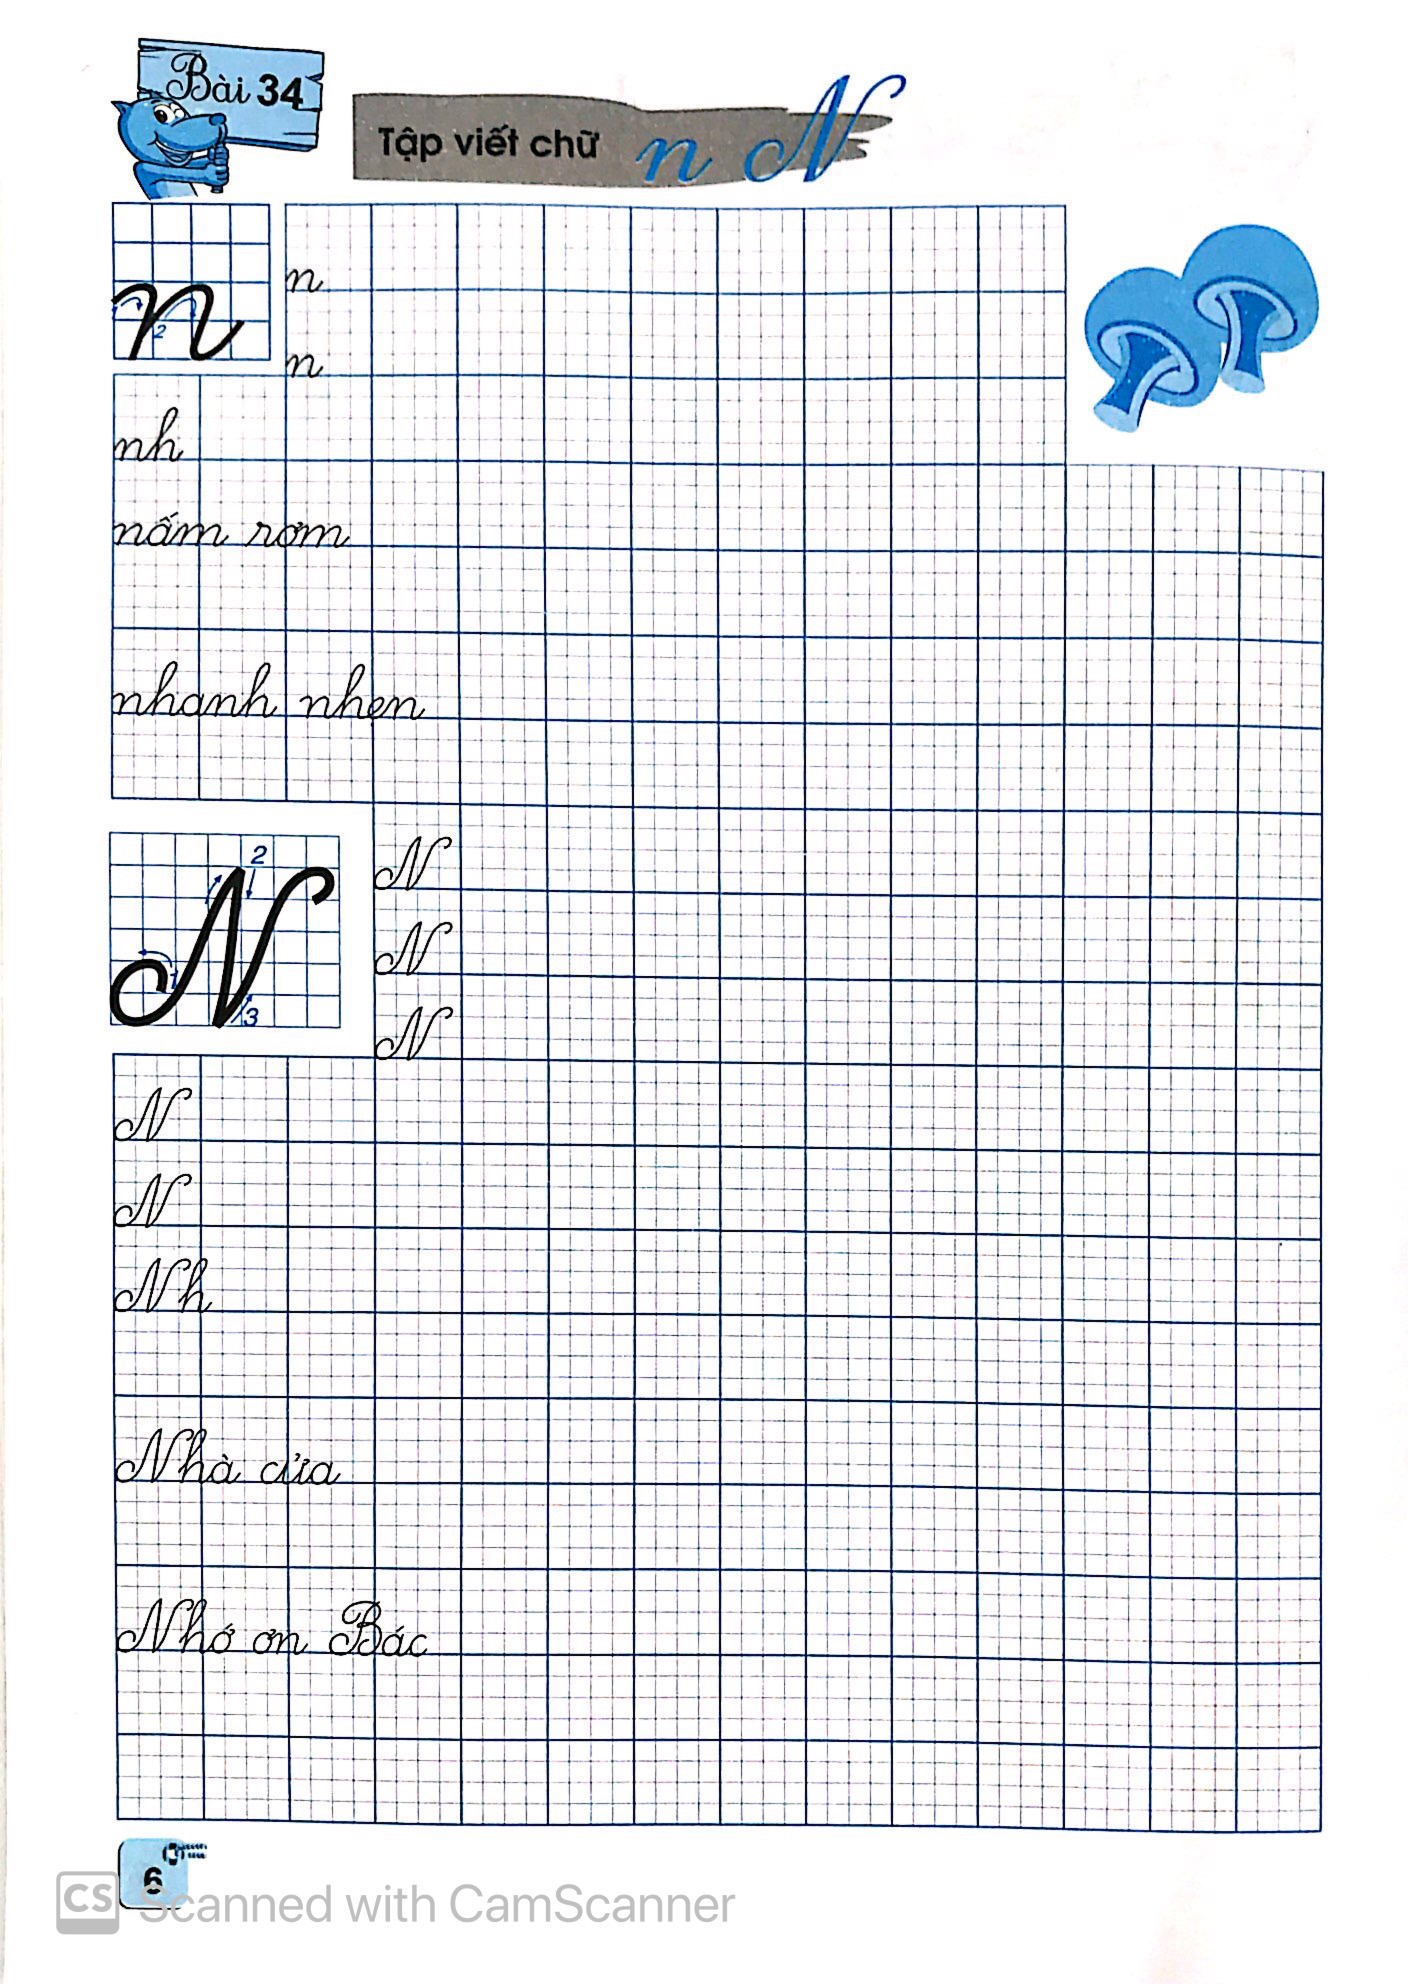 Bài 34
Tập viết chữ n N
n
2
n
nh
nấm rơm
nhanh nhẹn
2
N
N
1
3
N
N
N
Nh
Nhà cửa
Nhớ ơn Bác
6
CS Scanned with CamScanner